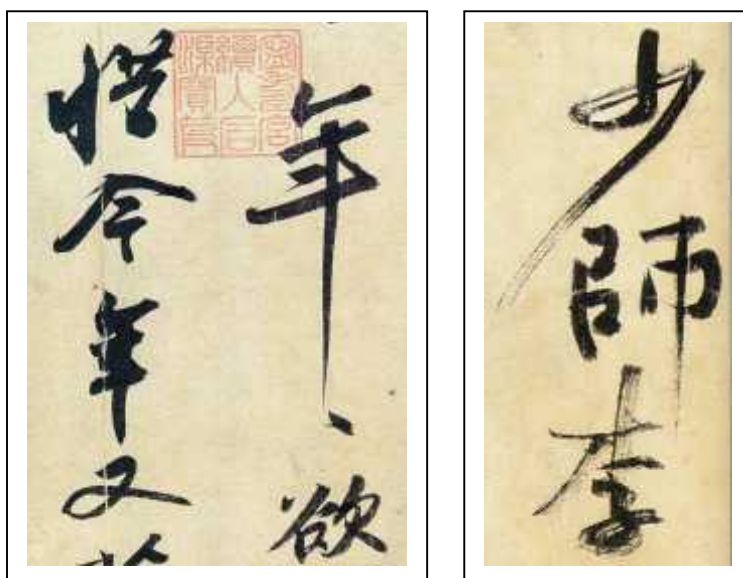 年、欲
惜今年又
少師李